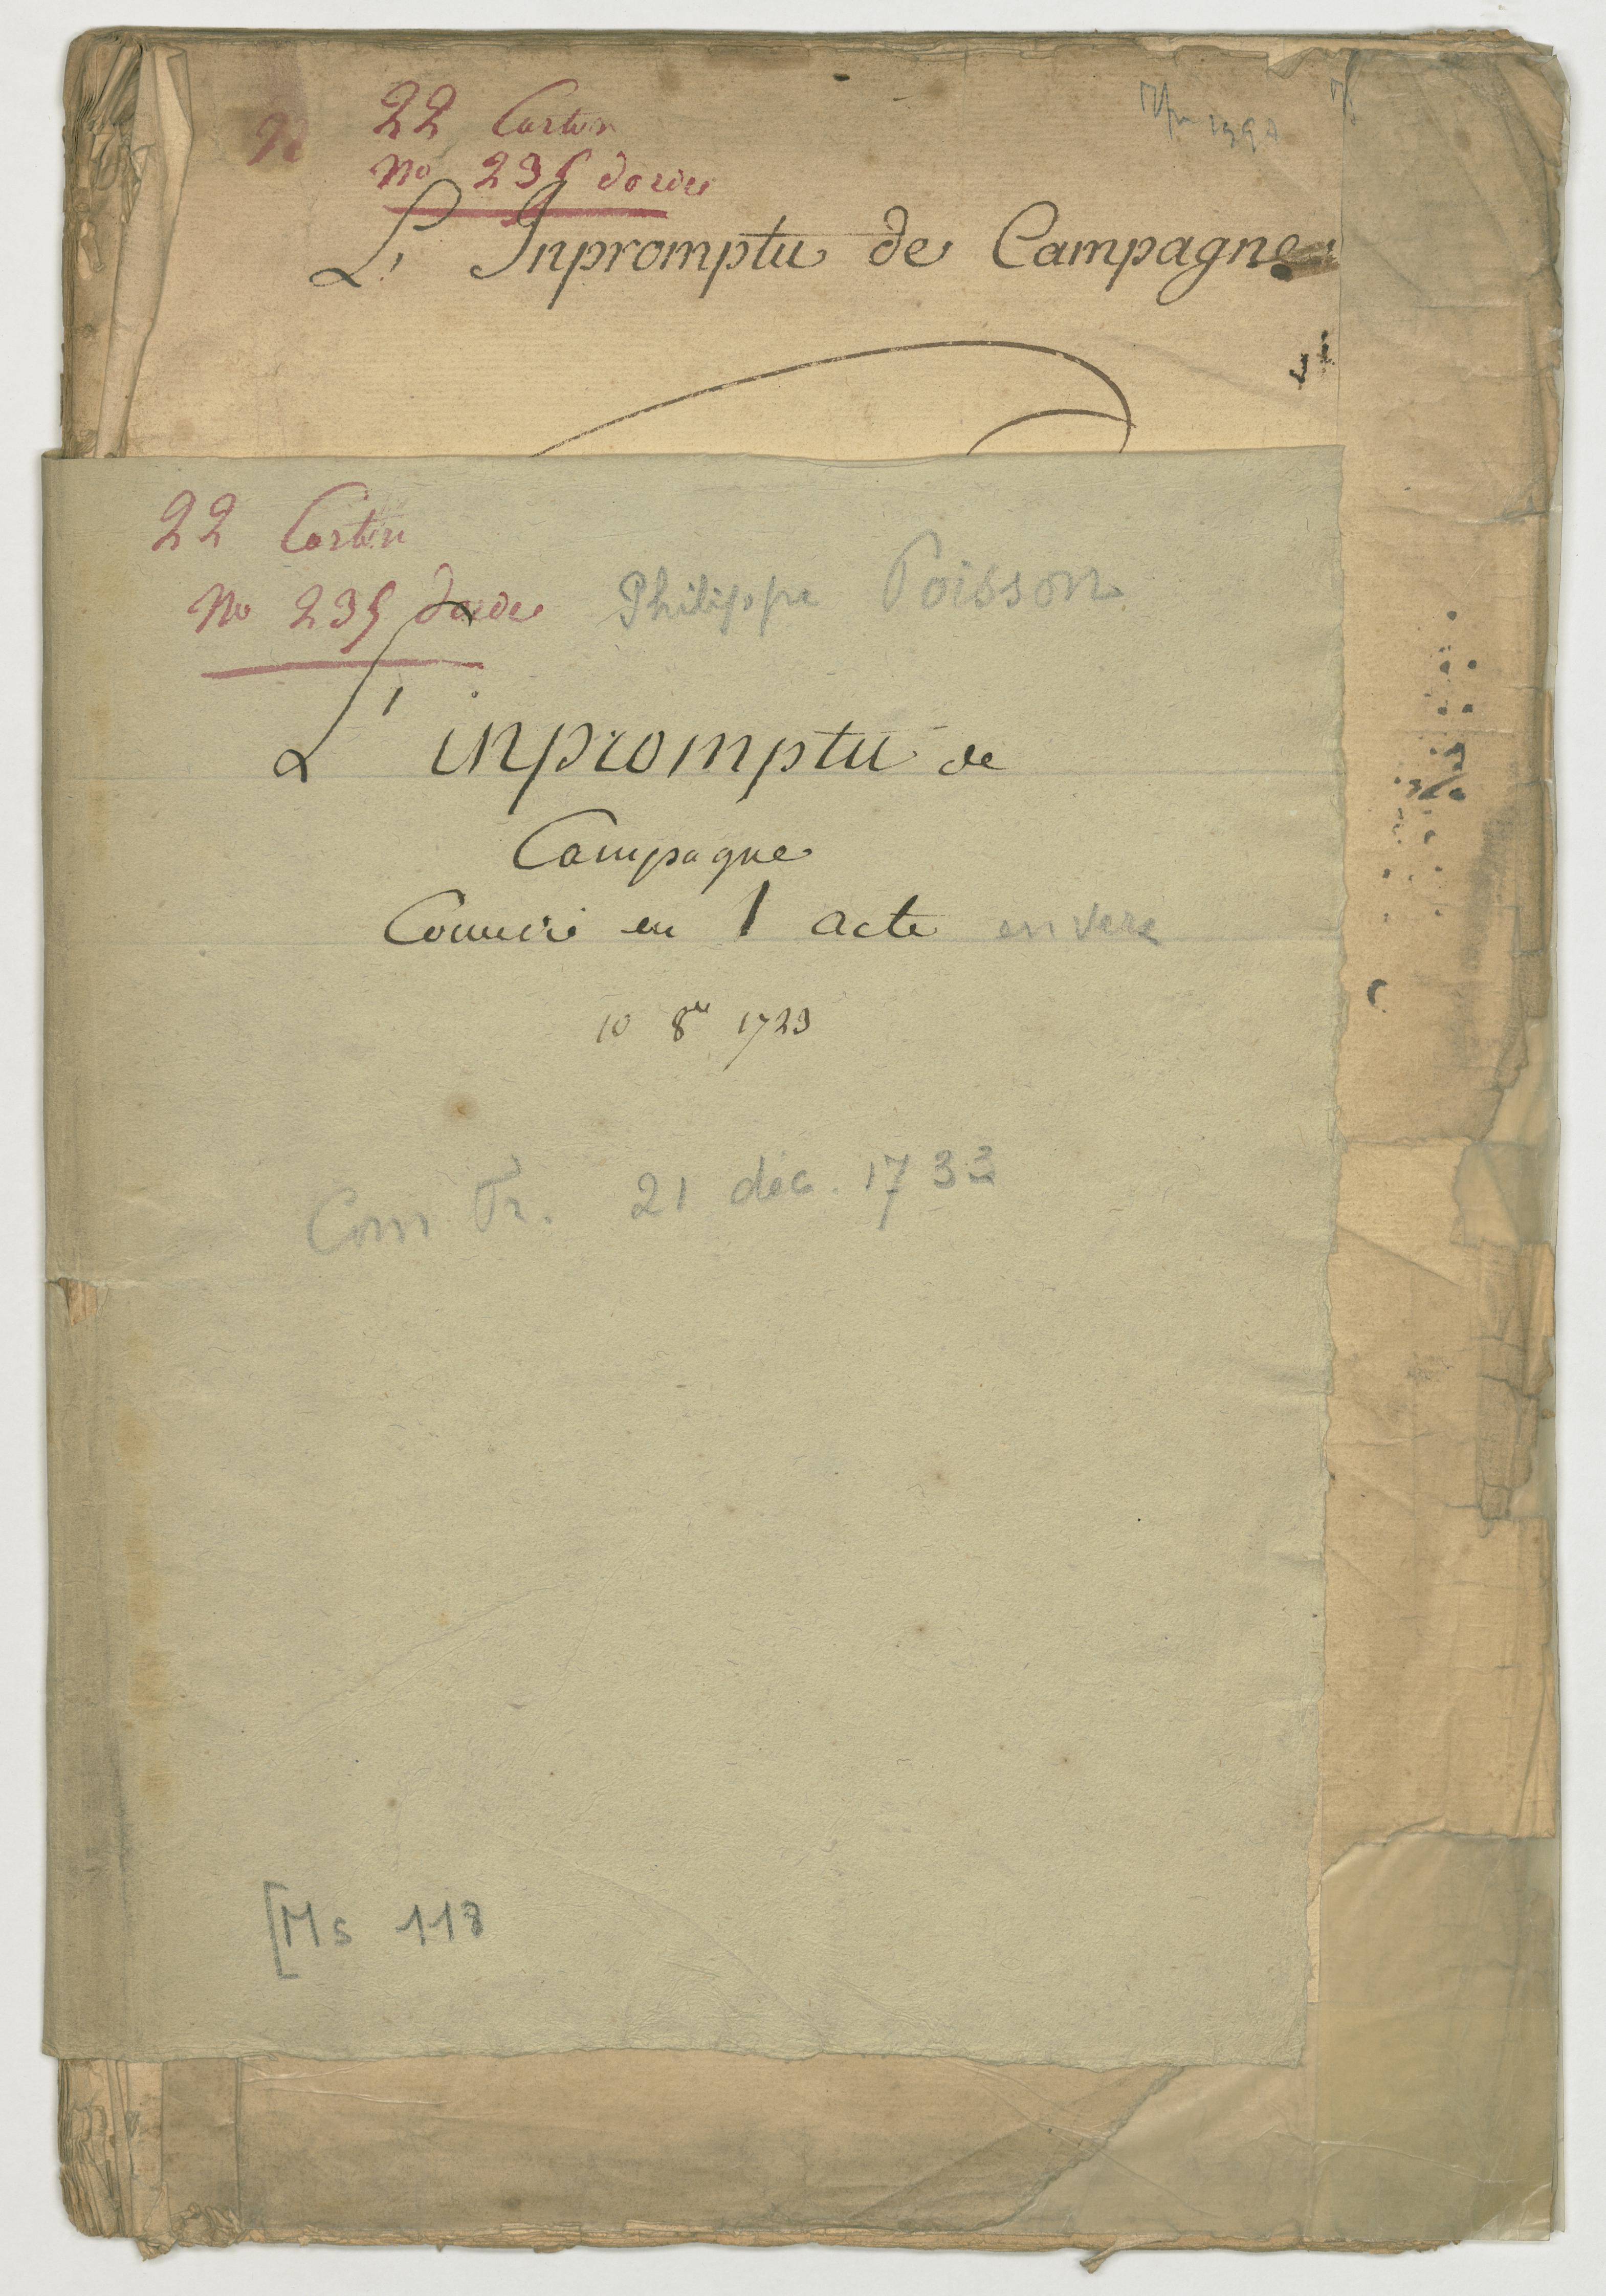 22 Carton
No 235 dordre
L'Inpromptu de Campagne
22 Carton
No 235 dordre Philippe Poisson
L'inpromptu de
Campagne
Comedie en 1 acte en vers
10 8bre 1723
Com. Fr. 21 déc. 1733
[Ms 118